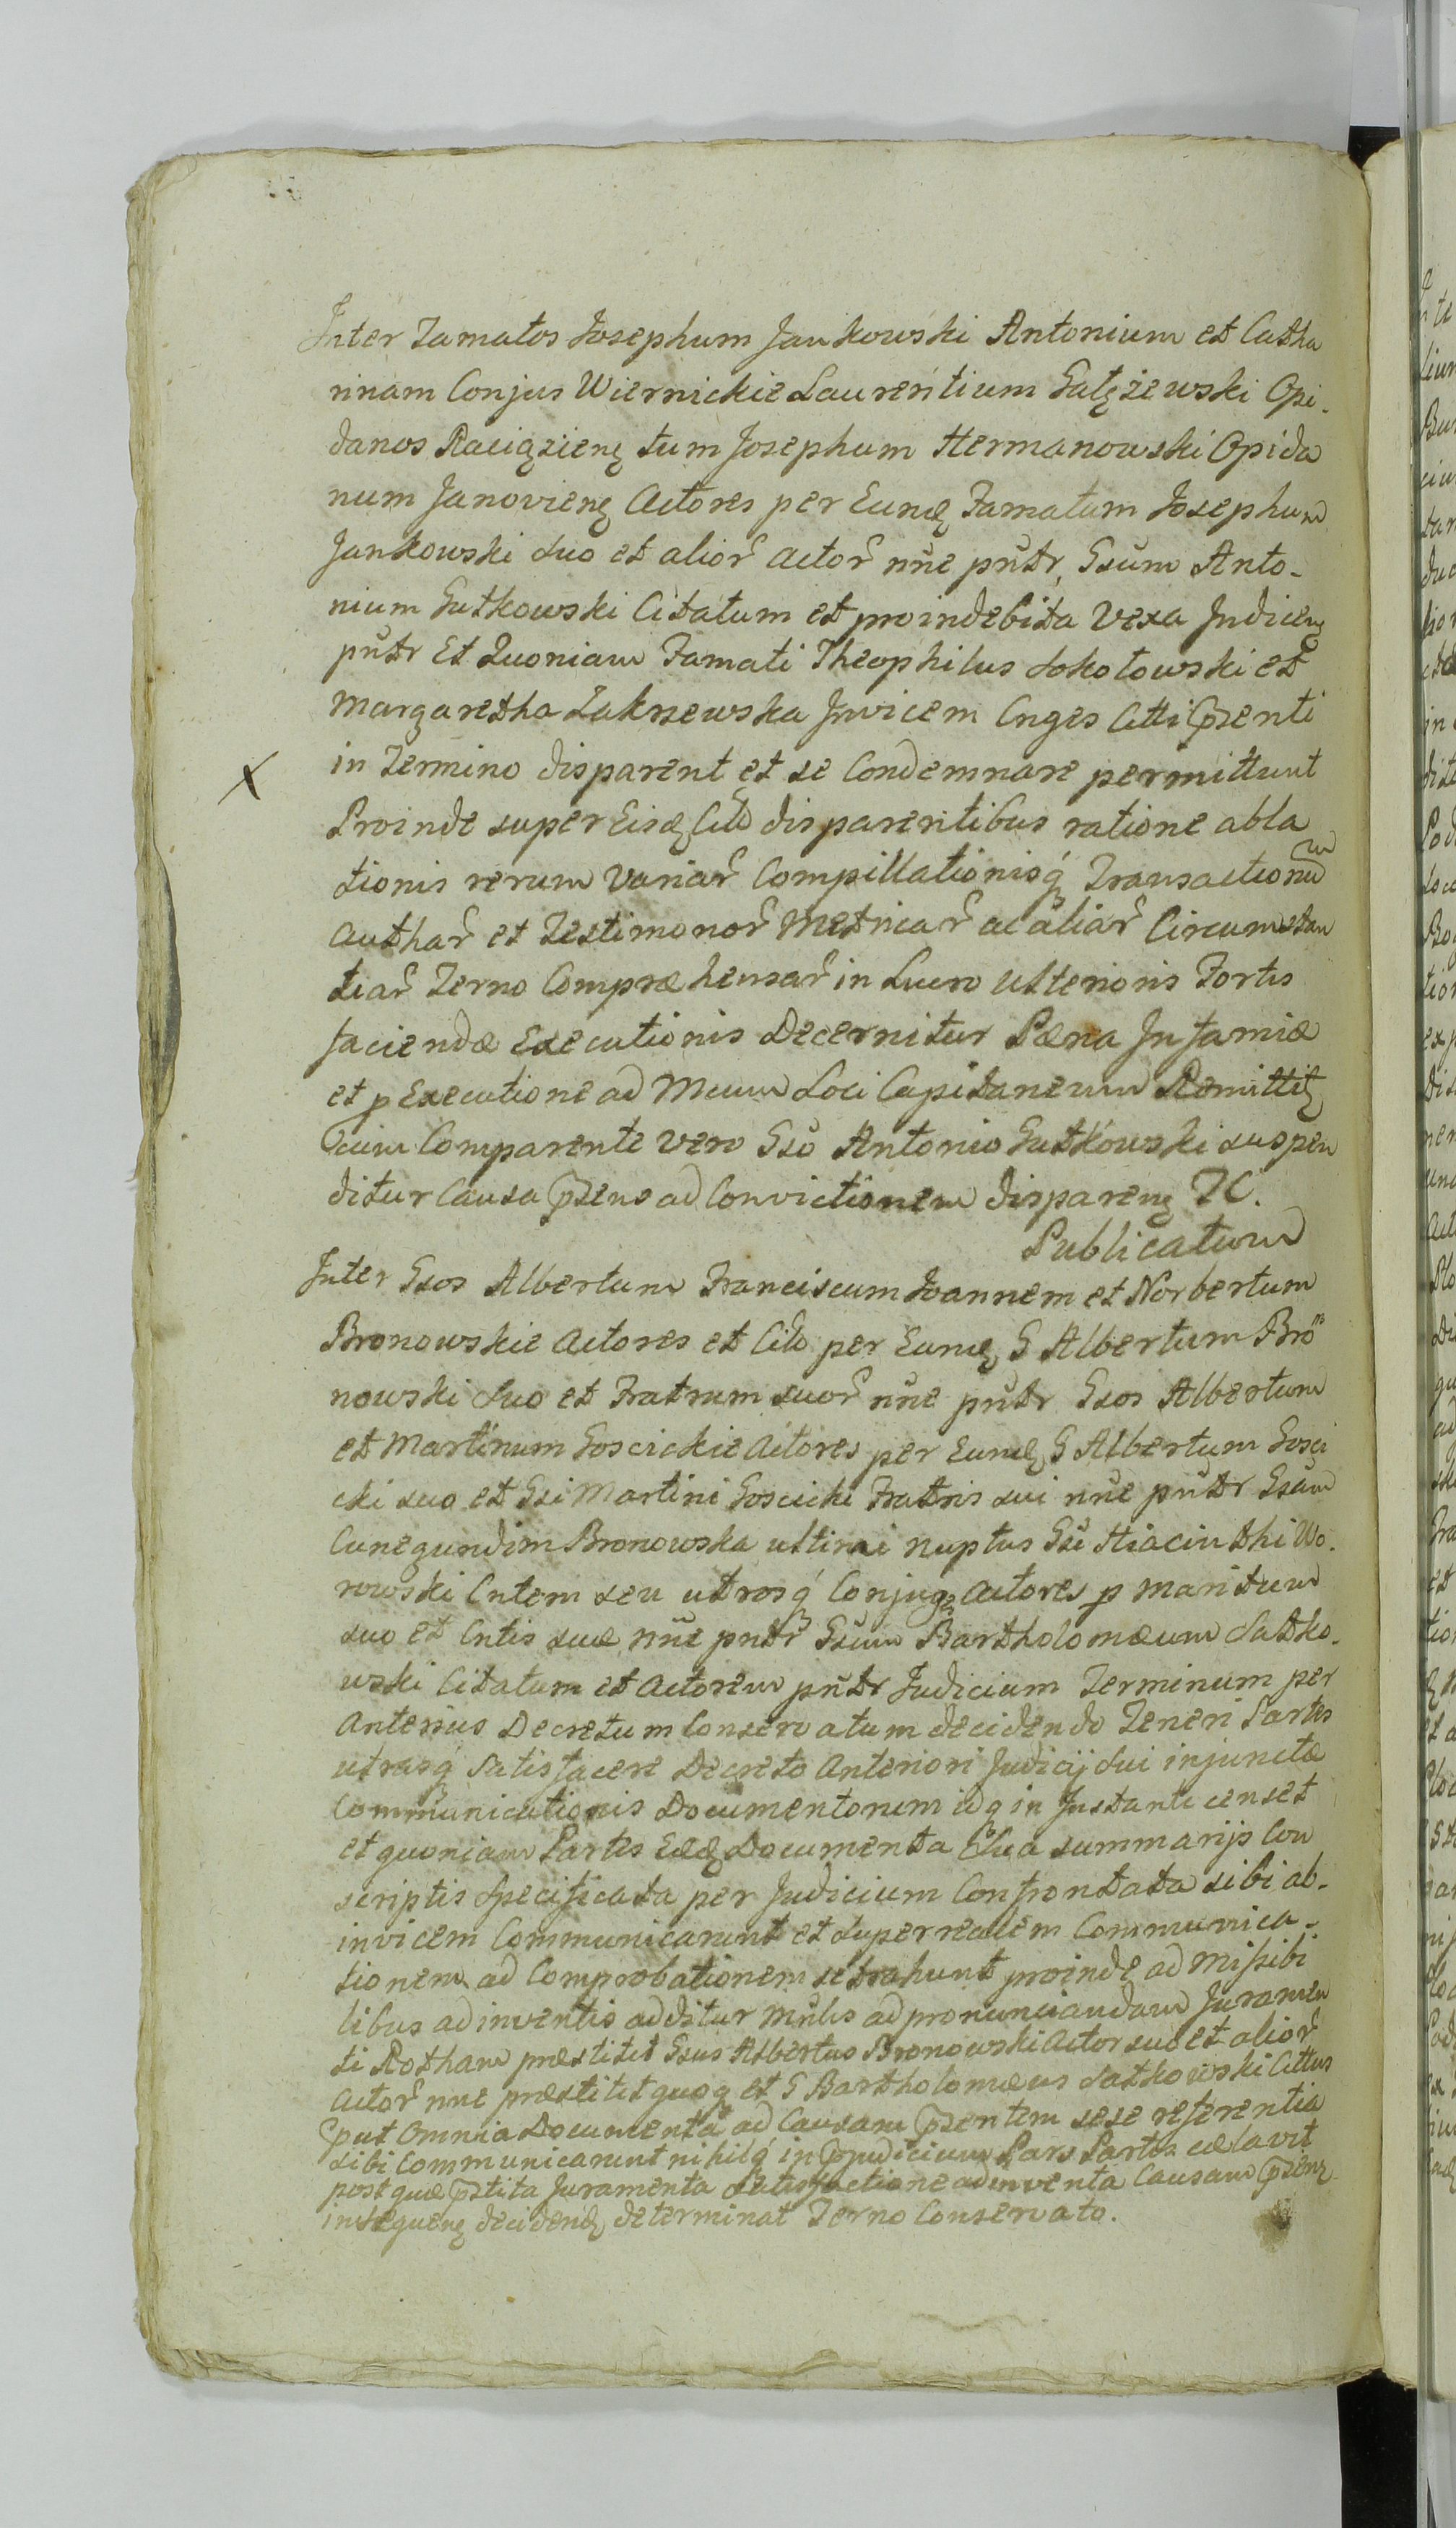 Inter Famatos Josephum Jankowski Antonium et Catha
rinam Conjus Wiernickie Laurentium Gałęzewski Opi-
danos Raciązienę tum Josephum Hermanowski Opida
num Janovienę Actores per Eundę Famatum Josephum
Jankowski Suo et alior̃ actor̃ nñe pñtr, Gsum Anto-
nium Gutkowski Citatum et pro indebita Vexa Judicenę
pñtr Et Quoniam Famati Theophilus Sokołowski et
Margaretha Zakrzewska Invicem Cnges Citti Psenti
X in Termino disparent et se Condemnare permittunt
Proinde super Eisdę Cittõ disparentibus ratione abla
tionis rerum Variar̃ Compillationisq́ Transactionũ
Authar̃ et Testimonor̃ Metricar̃ ac aliar̃ Circumstan
tiar̃ Terno Compræhensar̃ in Lucro Ulterioris Fortis
faciendæ Executionis Decernitur Pæna Infamiæ
et p Executione ad Mcum Loci Capitaneum Remittitę
Cum Comparente Vero Gsõ Antonio Gutkowski suspen
ditur Causa Psens ad Convictionem disparenę TC.
Publicatum
Inter Gsos Albertum Franciscum Joannem et Norbertum
Bronowskie Actores et Cittõ per Eundę G Albertum Bro
nowski Suo et Fratrum suor̃ nñe pñtr Gsos Albertum
et Martinum Goscickie Actores per Eundę G Albertum Gosci
cki suo et Gsi Martini Goscicki Fratris sui nñe pñtr Gsam
Cunegundim Bronowska ultimi nuptus Gsi Hiacinthi Wo-
rowski Cntem seu utrosq́ Conjuges Actores p maritum
suo et Cntis suæ nñe pñtr̃ Gsum Bartholomæum Satko-
wski Citatum et Actorem pñtr Judicium Terminum per
Anterius Decretum Conservatum decidendo Teneri Partes
utrasq́ Satisfacere Decreto Anteriori Judicij Sui injunctæ
Communicationis Documentorum idq in Instanti censet
et quoniam Partes Eædę Documenta Sua summarijs Con
scriptis Specificata per Judicium Confrontata sibi ab-
invicem Communicarunt et Super realem Communica-
tionem ad Comprobationem se trahunt proinde admissibi
libus adinventis additur Mñlis ad pronunciandam Juramen
ti Rotham præstitit Gsus Albertus Bronowski Actor suo et alior̃
Actor̃ nñe præstitit quoq et G Bartholomæus Satkowski Cittus
put Omnia Documenta ad Causam Psentem sese referentia
sibi Communicarunt nihilq́ in Pjudicium Pars Partes celavit
post quæ Pstita Juramenta Satisfactione adinventa Causam Psenę
insequenę decidendę determinat Terno Conservato.